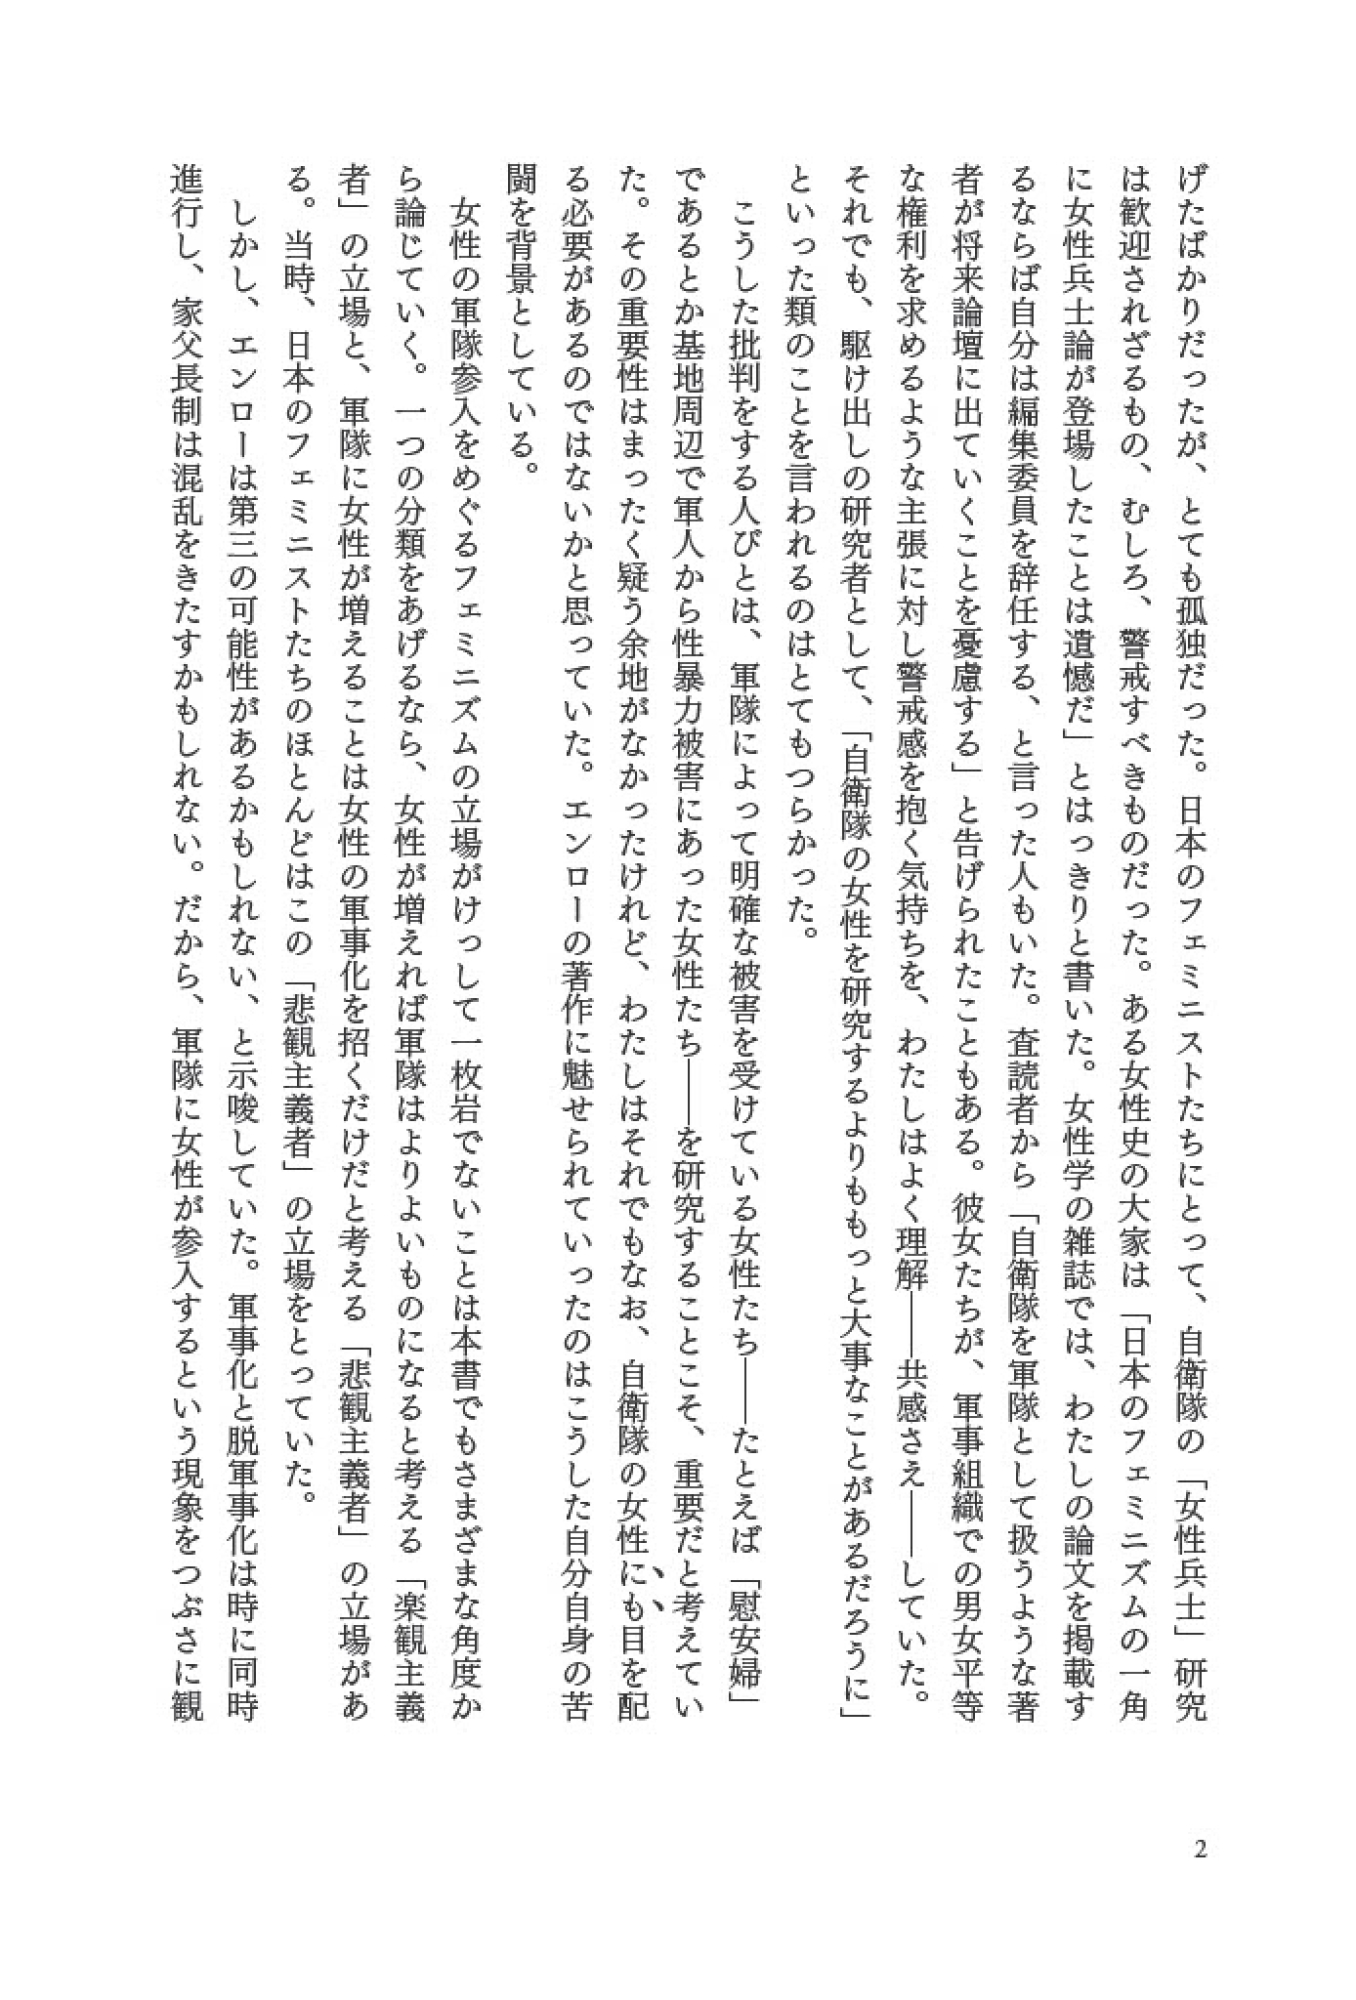 げたばかりだったが、とても孤独だった。日本のフェミニストたちにとって、自衛隊の「女性兵士」研究
は歓迎されざるもの、むしろ、警戒すべきものだった。ある女性史の大家は「日本のフェミニズムの一角
に女性兵士論が登場したことは遺憾だ」とはっきりと書いた。女性学の雑誌では、わたしの論文を掲載す
るならば自分は編集委員を辞任する、と言った人もいた。査読者から「自衛隊を軍隊として扱うような著
者が将来論壇に出ていくことを憂慮する」と告げられたこともある。彼女たちが、軍事組織での男女平等
な権利を求めるような主張に対し警戒感を抱く気持ちを、わたしはよく理解――共感さえ――していた。
それでも、駆け出しの研究者として、「自衛隊の女性を研究するよりももっと大事なことがあるだろうに」
といった類のことを言われるのはとてもつらかった。
こうした批判をする人びとは、軍隊によって明確な被害を受けている女性たち――たとえば「慰安婦」
であるとか基地周辺で軍人から性暴力被害にあった女性たち――を研究することこそ、重要だと考えてい
た。その重要性はまったく疑う余地がなかったけれど、わたしはそれでもなお、自衛隊の女性にも目を配
る必要があるのではないかと思っていた。エンローの著作に魅せられていったのはこうした自分自身の苦
闘を背景としている。
女性の軍隊参入をめぐるフェミニズムの立場がけっして一枚岩でないことは本書でもさまざまな角度か
ら論じていく。一つの分類をあげるなら、女性が増えれば軍隊はよりよいものになると考える「楽観主義
者」の立場と、軍隊に女性が増えることは女性の軍事化を招くだけだと考える「悲観主義者」の立場があ
る。当時、日本のフェミニストたちのほとんどはこの「悲観主義者」の立場をとっていた。
しかし、エンローは第三の可能性があるかもしれない、と示唆していた。軍事化と脱軍事化は時に同時
進行し、家父長制は混乱をきたすかもしれない。だから、軍隊に女性が参入するという現象をつぶさに観
2